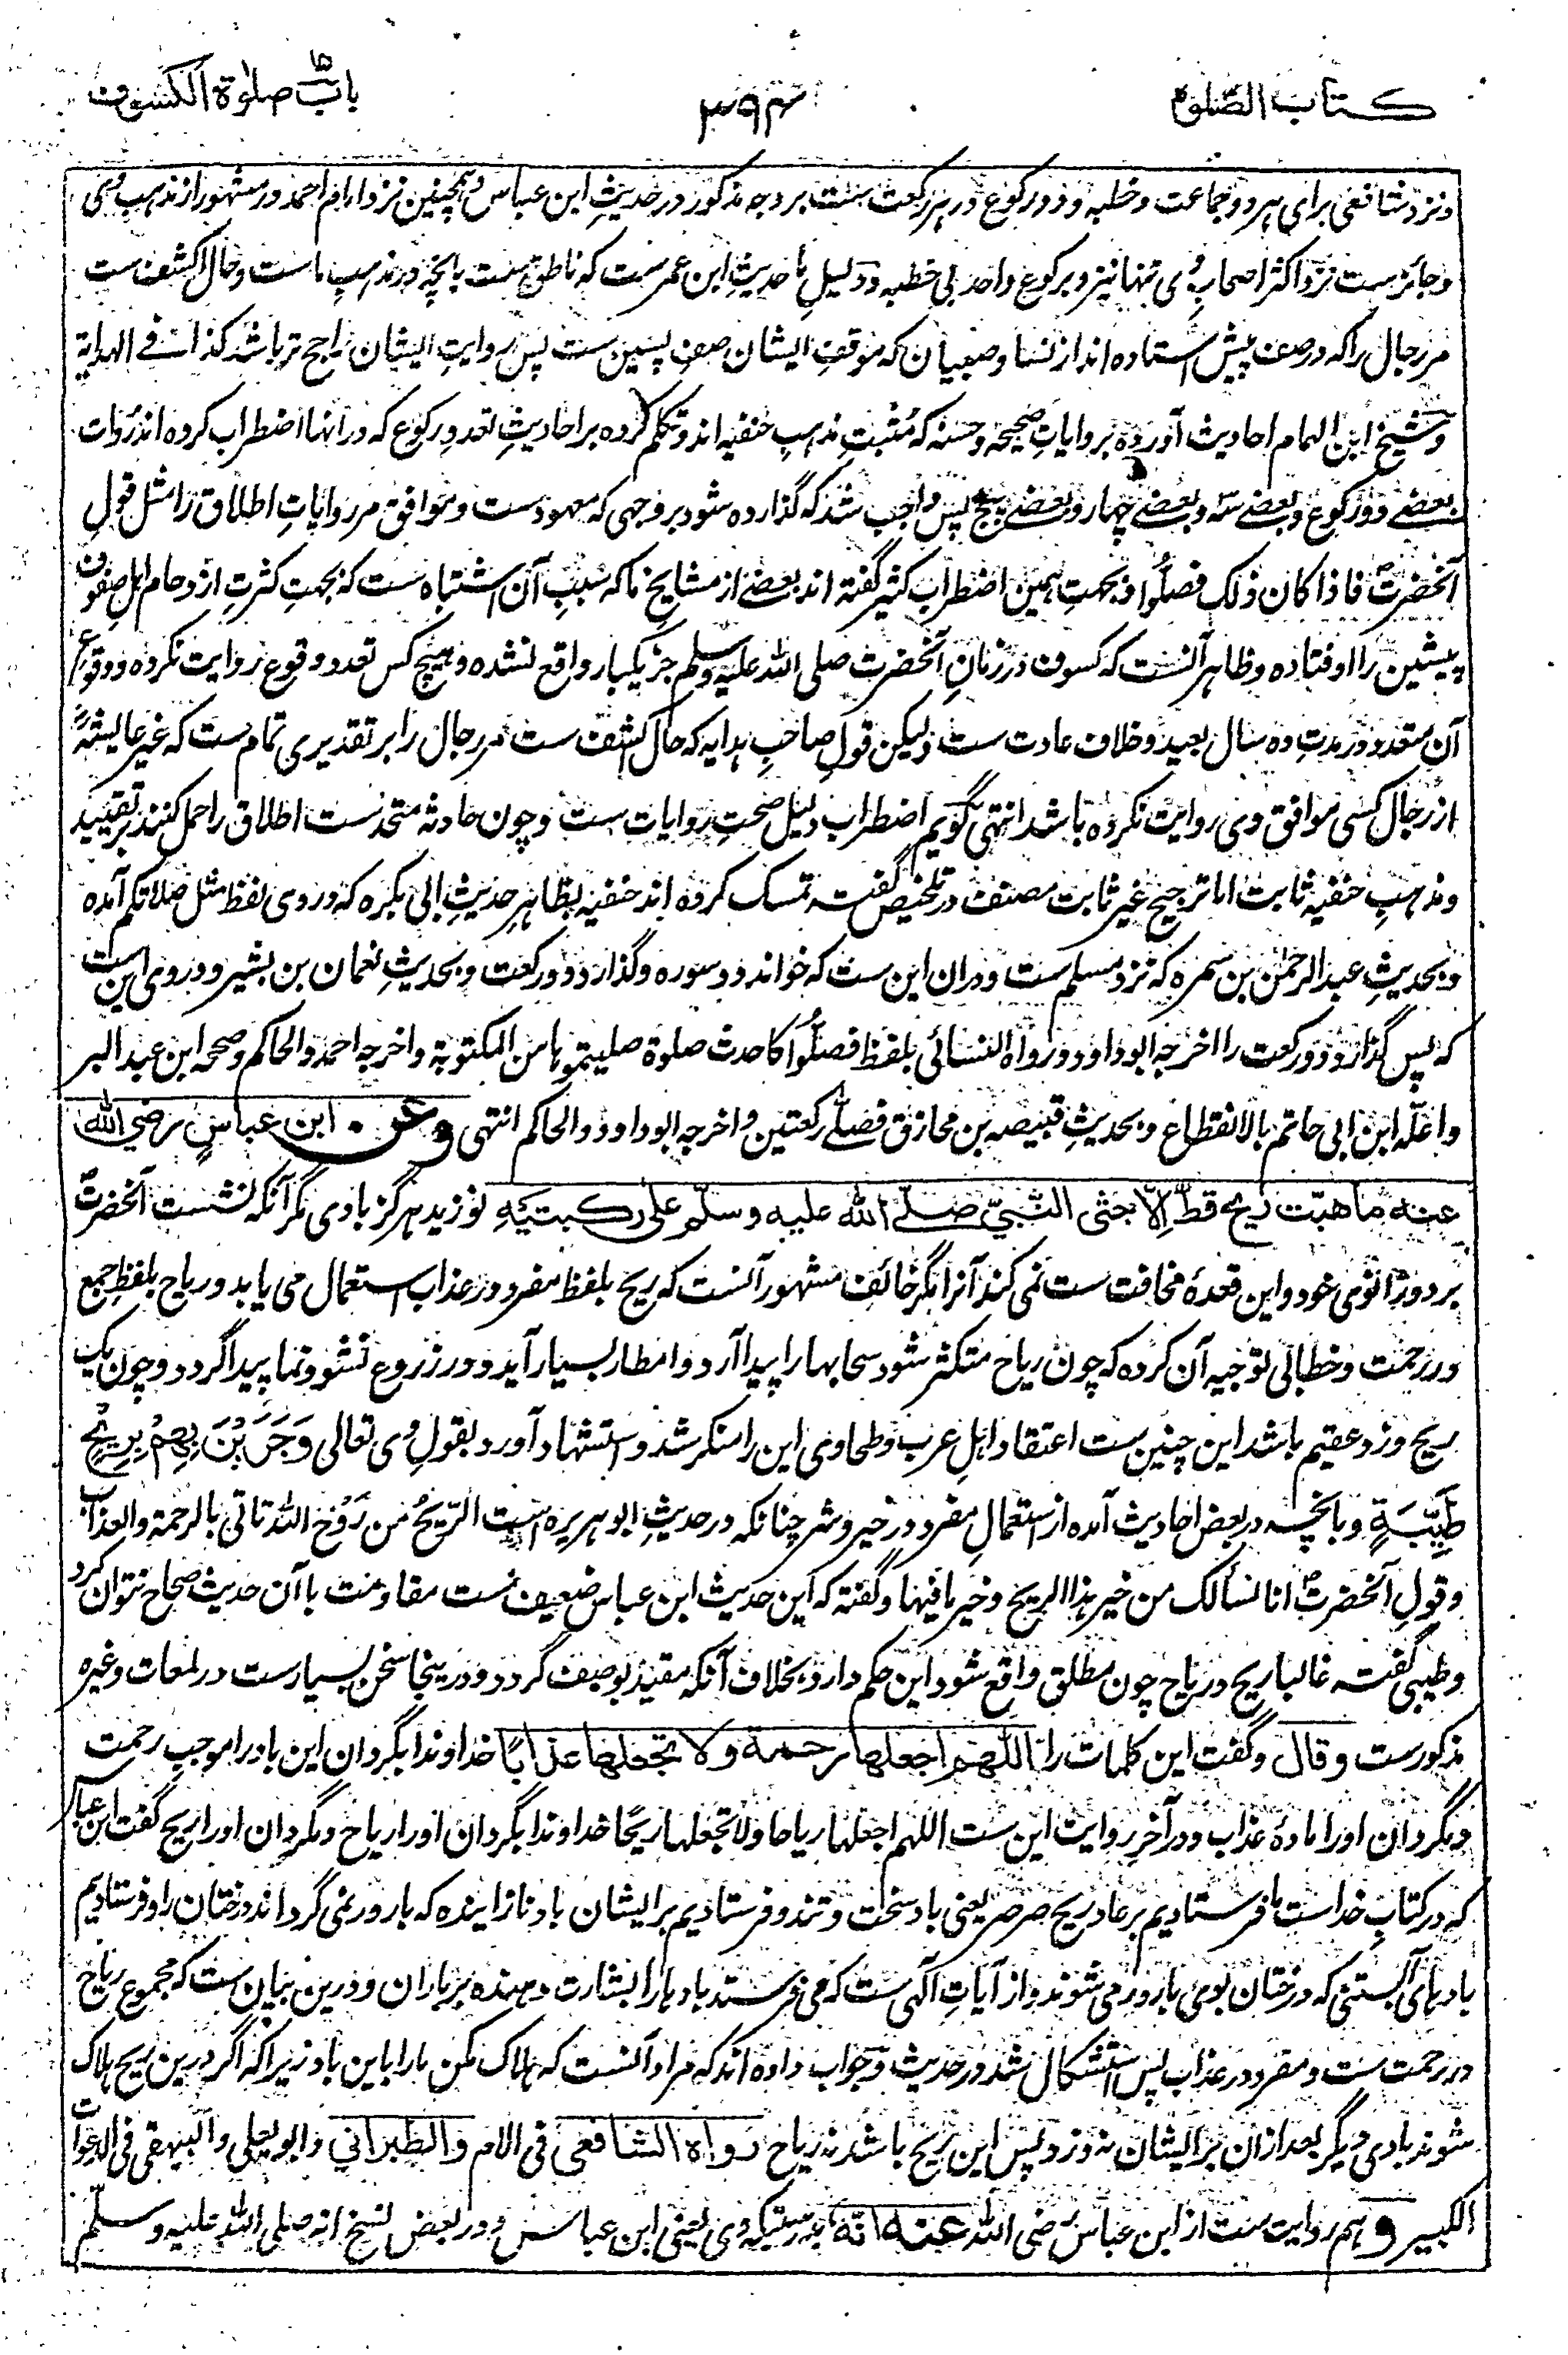 کتاب الصلوة
۳۹۴
باب صلوٰة الکسوف
ونزد شافعی برای هر دو جماعت و خطبه و دو رکوع در هر رکعت ست بر وجه مذکور در حدیثِ ابن عباس و همچنین نزد امام احمد در مشهور از مذهب وی
و جائز ست نزد اکثر اصحابِ وی تنها نیز و برکوع واحد بی خطبه و دلیلِ ما حدیثِ ابن عمر ست که ناطق ست بانچه در مذهبِ ما ست و حال اکشف ست
مر رجال را که در صف پیش استاده اند از نسا و صبیان که موقفِ ایشان صفِ پسین ست پس روایتِ ایشان راجح تر باشد کذا فے الهدایة
و شیخ ابن الهمام احادیث آورده بروایاتِ صحیحه و حسنه که مُثبتِ مذهبِ حنفیه اند و تکلم کرده بر احادیثِ تعددِ رکوع که در آنها اضطراب کرده اند رُوات
بعضے دو رکوع و بعضے سه و بعضے چهار و بعضے پنج پس واجب شد که گذارده شود بر وجهی که معهود ست و موافق مر روایاتِ اطلاق را مثل قولِ
آنحضرتؐ فاذا کان ذلک فصلُّوا و بجهتِ همین اضطراب کثیر گفته اند بعضے از مشایخ ما که سببِ آن اشتباه ست که بجهتِ کثرتِ ازدحام اهلِ صفوف
پیشین را اوفتاده و ظاهر آنست که کسوف در زمانِ آنحضرت صلی الله علیه وسلم جز یکبار واقع نشده و هیچ کس تعدد وقوع روایت نکرده و وقوع
آن متعدد در مدتِ ده سال بعید و خلاف عادت ست ولیکن قولِ صاحبِ هدایه که حال اکشف ست مر رجال را بر تقدیری تمام ست که غیر عایشهؓ
از رجال کسی موافق وی روایت نکرده باشد انتهی گویم اضطراب دلیل صحتِ روایات ست و چون حادثه متحد ست اطلاق را حمل کنند بر تقیید
و مذهبِ حنفیه ثابت اما ترجیح غیر ثابت مصنف در تلخیص گفته تمسک کرده اند حنفیه بظاهر حدیثِ ابی بکره که در وی لفظ مثل صلاتکم آمده
و بحدیثِ عبدالرحمٰن بن سمره که نزد مسلم ست و دران این ست که خواند دو سوره و گذارد دو رکعت و بحدیثِ نعمان بن بشیر و در وی این است
که پس گذارد دو رکعت را اخرجه ابوداود و رواه النسائی بلفظ فصلُّوا کاحدث صلوة صلیتموها من المکتوبة و اخرجه احمد والحاکم وصححه ابن عبد البر
واعلّه ابن ابی حاتم بالانقطاع و بحدیثِ قبیصه بن مخارق فصلّے رکعتین و اخرجه ابوداود والحاکم انتهی وعن ابن عباسٍ رضی الله
عنه ما هبّت ریح قطّ اِلّا جثی النّبیّ صلّے الله علیه وسلّم علی رکبتیه نوزید هرگز بادی مگر آنکه نشست آنحضرتؐ
بر دو زانوی خود و این قعدهٔ مخافت ست نمی کند آنرا مگر خائف مشهور آنست که ریح بلفظ مفرد در عذاب استعمال می یابد و ریاح بلفظِ جمع
در رحمت و خطابی توجیه آن کرده که چون ریاح متکثر شود سحابها را پیدا آرد و امطار بسیار آید و در زروع نشو و نما پیدا گردد و چون یک
ریح وزد عقیم باشد این چنین ست اعتقاد اهلِ عرب و طحاوی این را منکر شد و استشهاد آورد بقولِ وی تعالی وَجَرَیْنَ بِهِمْ بِرِیْحٍ
طَیِّبَةٍ و بانچه در بعض احادیث آمده از استعمالِ مفرد در خیر و شر چنانکه در حدیثِ ابو هریره است الرّیحُ من رَوْحِ الله تاتی بالرحمة والعذاب
و قولِ آنحضرتؐ انا نسألک من خیر هذا الریح و خیر ما فیها و گفته که این حدیث ابن عباس ضعیف ست مقاومت با آن حدیث صحاح نتوان کرد
و طیبی گفته غالبا ریح و ریاح چون مطلق واقع شود این حکم دارد بخلاف آنکه مقید بوصف گردد و در ینجا سخن بسیار ست در لمعات وغیره
مذکور ست وقال و گفت این کلمات را اللهم اجعلها رحمة ولا تجعلها عذاباً خداوندا بگردان این باد را موجب رحمت
و مگردان او را مادهٔ عذاب و در آخر روایت این ست اللهم اجعلها ریاحا ولا تجعلها ریحًا خداوندا بگردان او را ریاح و مگردان او را ریح گفت ابن عباس
که در کتابِ خداست ما فرستادیم بر عاد ریح صرصر یعنی باد سخت و تند و فرستادیم بر ایشان باد نازاینده که بارور نمی گرداند درختان را و فرستادیم
بادهای آبستنی که درختان بوی بارور می شوند و از آیاتِ الٓهی ست که می فرستد بادها را بشارت دهنده بر باران و درین بیان ست که مجموع ریاح
در رحمت ست و مفرد در عذاب پس استشکال شد در حدیث و جواب داده اند که مراد آنست که هلاک مکن ما را باین باد زیرا که اگر درین ریح هلاک
شوند بادی دیگر بعد از ان بر ایشان نه وزد پس این ریح باشد نه ریاح رواه الشافعی فی الام والطبرانی و ابو یعلی والبیهقی فی الدعوات
الکبیر و هم روایت ست از ابن عباس رضی الله عنه انّه بدرستیکه وی یعنی ابن عباس و در بعض نسخ انه صلی الله علیه وسلّم